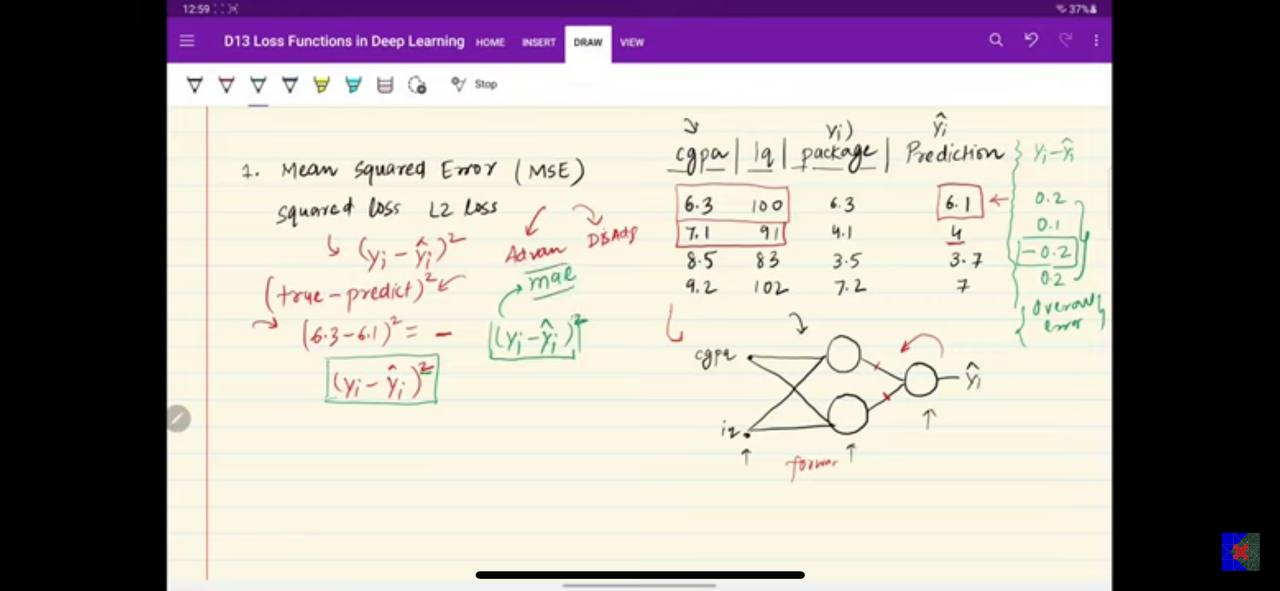 12:59
37%
D13 Loss Functions in Deep Learning HOME INSERT DRAW VIEW
Stop
1. Mean Squared Error (MSE)
Squared loss L2 Loss
(yᵢ - ŷᵢ)²
Advan
DisAdg
mae
(true - predict)²
(6.3 - 6.1)² = -
(yᵢ - ŷᵢ)²
(yᵢ - ŷᵢ)²
yᵢ) ŷᵢ
cgpa | Iq | package | Prediction } yᵢ - ŷᵢ
6.3 100 6.3 6.1 0.2
7.1 91 4.1 4 0.1
8.5 83 3.5 3.7 -0.2
9.2 102 7.2 7 0.2
{ Overall error }
cgpa
ŷᵢ
iq
forwar